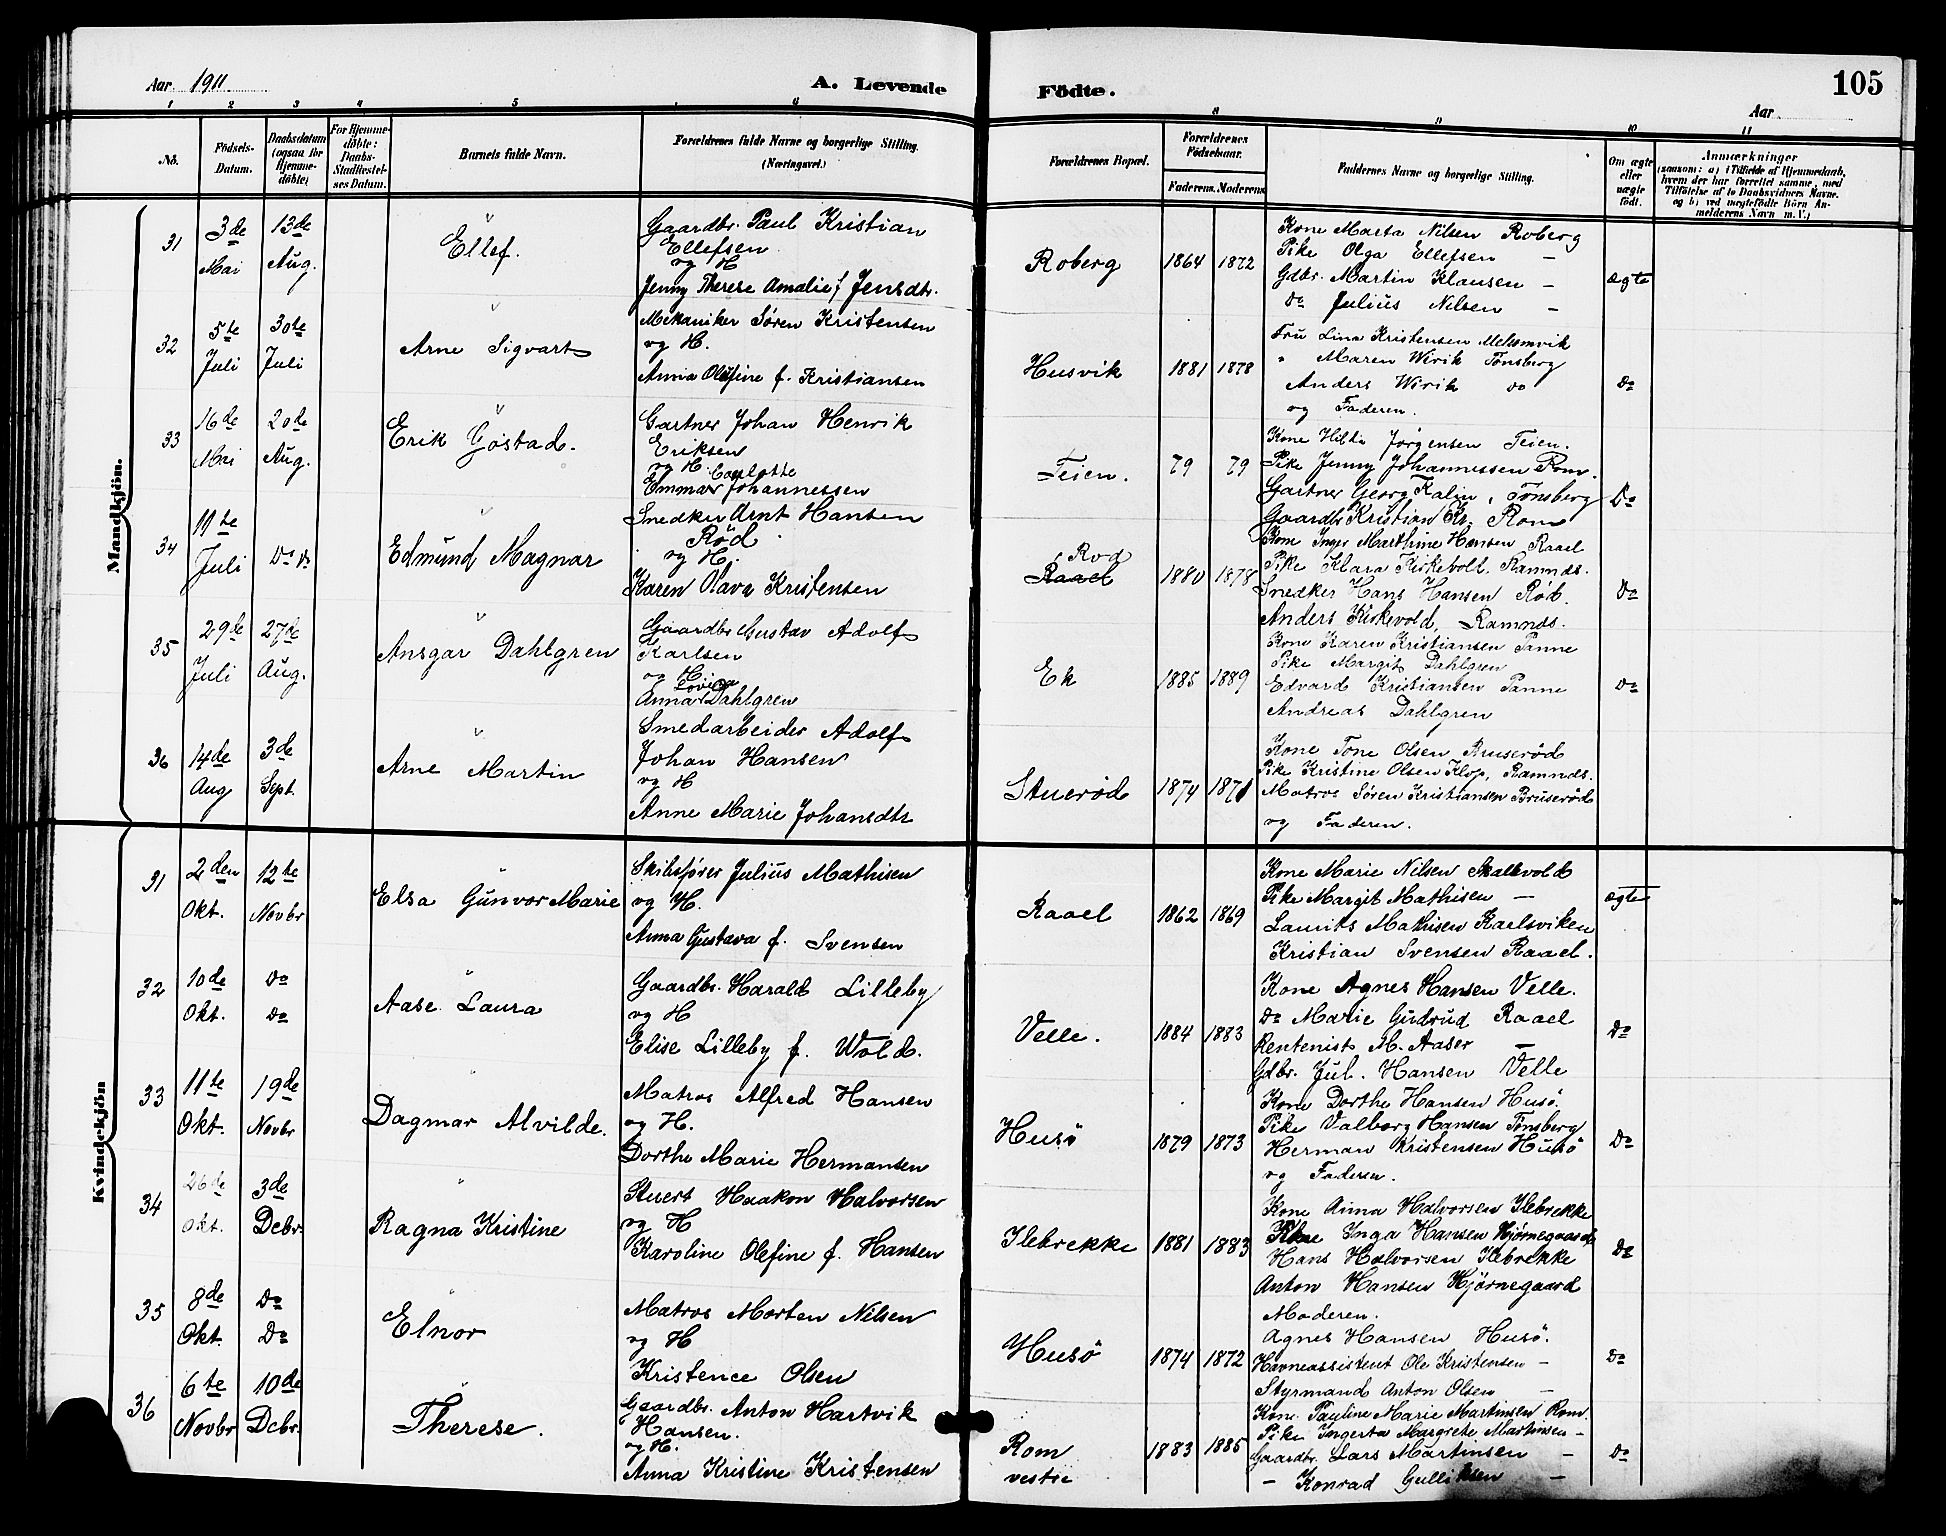 Aar. 1911
A. Levende Födte.
105
Aar
1 2 3 4 5 6 8 9 10 11
No. Födsels-Datum. Daabsdatum (ogsaa for Hjemme-döbte) For Hjemme-döbte: Daabs-Stadfæstel-ses Datum. Barnets fulde Navn. Forældrenes fulde Navne og borgerlige Stilling. (Næringsvei.) Forældrenes Bopæl. Forældrenes Födselsaar. Faderens. Moderens. Faddernes Navne og borgerlige Stilling. Om ægte eller uægte födt. Anmærkninger (saasom: a) i Tilfælde af Hjemmedaab, hvem der har forrettet samme, med Tilföielse af to Daabsvidners Navne, og b) ved uægtefödte Börn An-melderens Navn m. V.)
Mandkjön.
31 3de Mai 13de Aug. Ellef. Gaardbr. Paul Kristian Ellefsen og H Jenny Therese Amalie f Jensdtr. Roberg 1864 1872 ægte
Kone Marta Nilsen Roberg
Pike Olga Ellefsen —
Gdbr. Martin Klausen —
Do Julius Nilsen —
32 5te Juli 30te Juli Arne Sigvart Mekaniker Søren Kristensen og H. Anna Olefine f. Kristiansen Husvik 1881 1878 Do
Fru Lina Kristensen Melsomvik
" Maren Wirik Tønsberg
Anders Wirik do
og Faderen.
33 16de Mai 20de Aug. Erik Gøstad. Gartner Johan Henrik Eriksen og H. Emma Carlotte Johannessen Teien. 79 79 Do
Kone Hilda Jørgensen Teien.
Pike Jenny Johannessen Rom.
Gartner Georg Kalin, Tønsberg
Gaardbr Kristian Kr. Rom
34 11te Juli Do Do Edmund Magnar Snedker Arnt Hansen Rød og H. Karen Olava Kristensen Rød Raael 1880 1878 Do
Kone Inger Marthine Hansen Raael
Pike Klara Kirkevold. Ramnds.
Snedker Hans Hansen Rød.
Anders Kirkevold, Ramnds.
35 29de Juli 27de Aug. Ansgar Dahlgren Gaardbr Gustav Adolf Karlsen og H. Anna Lovisa Dahlgren Ek 1885 1889 Do
Kone Karen Kristiansen Tanne
Pike Margit Dahlgren
Edvard Kristiansen Tanne
Andreas Dahlgren
36 14de Aug 3de Sept. Arne Martin Smedarbeider Adolf Johan Hansen og H Anne Marie Johansdtr Stuerød 1874 1871
Kone Tone Olsen Bruserød
Pike Kristine Olsen Klop, Ramnds.
Matros Søren Kristiansen Bruserød
og Faderen.
Kvindekjön
31 2den Okt. 12te Novbr Elsa Gunvor Marie Skibsfører Julius Mathisen og H. Anna Gustava f. Svensen Raael 1862 1869 ægte
Kone Marie Nilsen Skallevold
Pike Margit Mathisen —
Laurits Mathisen Kaelsviken
Kristian Svensen Raael.
32 10de Okt. Do Do Aase Laura Gaardbr. Harald Lilleby og H Elise Lilleby f. Wold. Velle. 1884 1883 Do
Kone Agnes Hansen Velle.
Do Marie Gudrud Raael
Rentenist M. Aaser —
Gdbr. Jul. Hansen Velle
33 11te Okt. 19de Novbr Dagmar Alvilde. Matros Alfred Hansen og H. Dorthe Marie Hermansen Husø 1879 1873 Do
Kone Dorthe Hansen Husø.
Pike Valborg Hansen Tønsberg
Herman Kristensen Husø
og Faderen.
34 26de Okt. 3de Debr. Ragna Kristine Stuert Haakon Halvorsen og H Karoline Olefine f. Hansen Ilebrekke 1881 1883 Do
Kone Anna Halvorsen Ilebrekke
Pike Inga Hansen Hjørnegaard
Hans Halvorsen Ilebrekke
Anton Hansen Hjørnegaard
35 8de Okt. Do Do Elnor Matros Morten Nilsen og H Kristence Olsen Husø 1874 1872 Do
Moderen.
Agnes Hansen Husø.
Havneassistent Ole Kristensen —
Styrmand Anton Olsen —
36 6te Novbr 10de Debr. Therese. Gaardbr. Anton Hartvik Hansen. og H. Anna Kristine Kristensen Rom vestre 1883 1885 Do
Kone. Pauline Marie Martinsen Rom.
Pike Ingerta Margrete Martinsen —
Gaardbr. Lars Martinsen —
— Konrad Gulliksen —